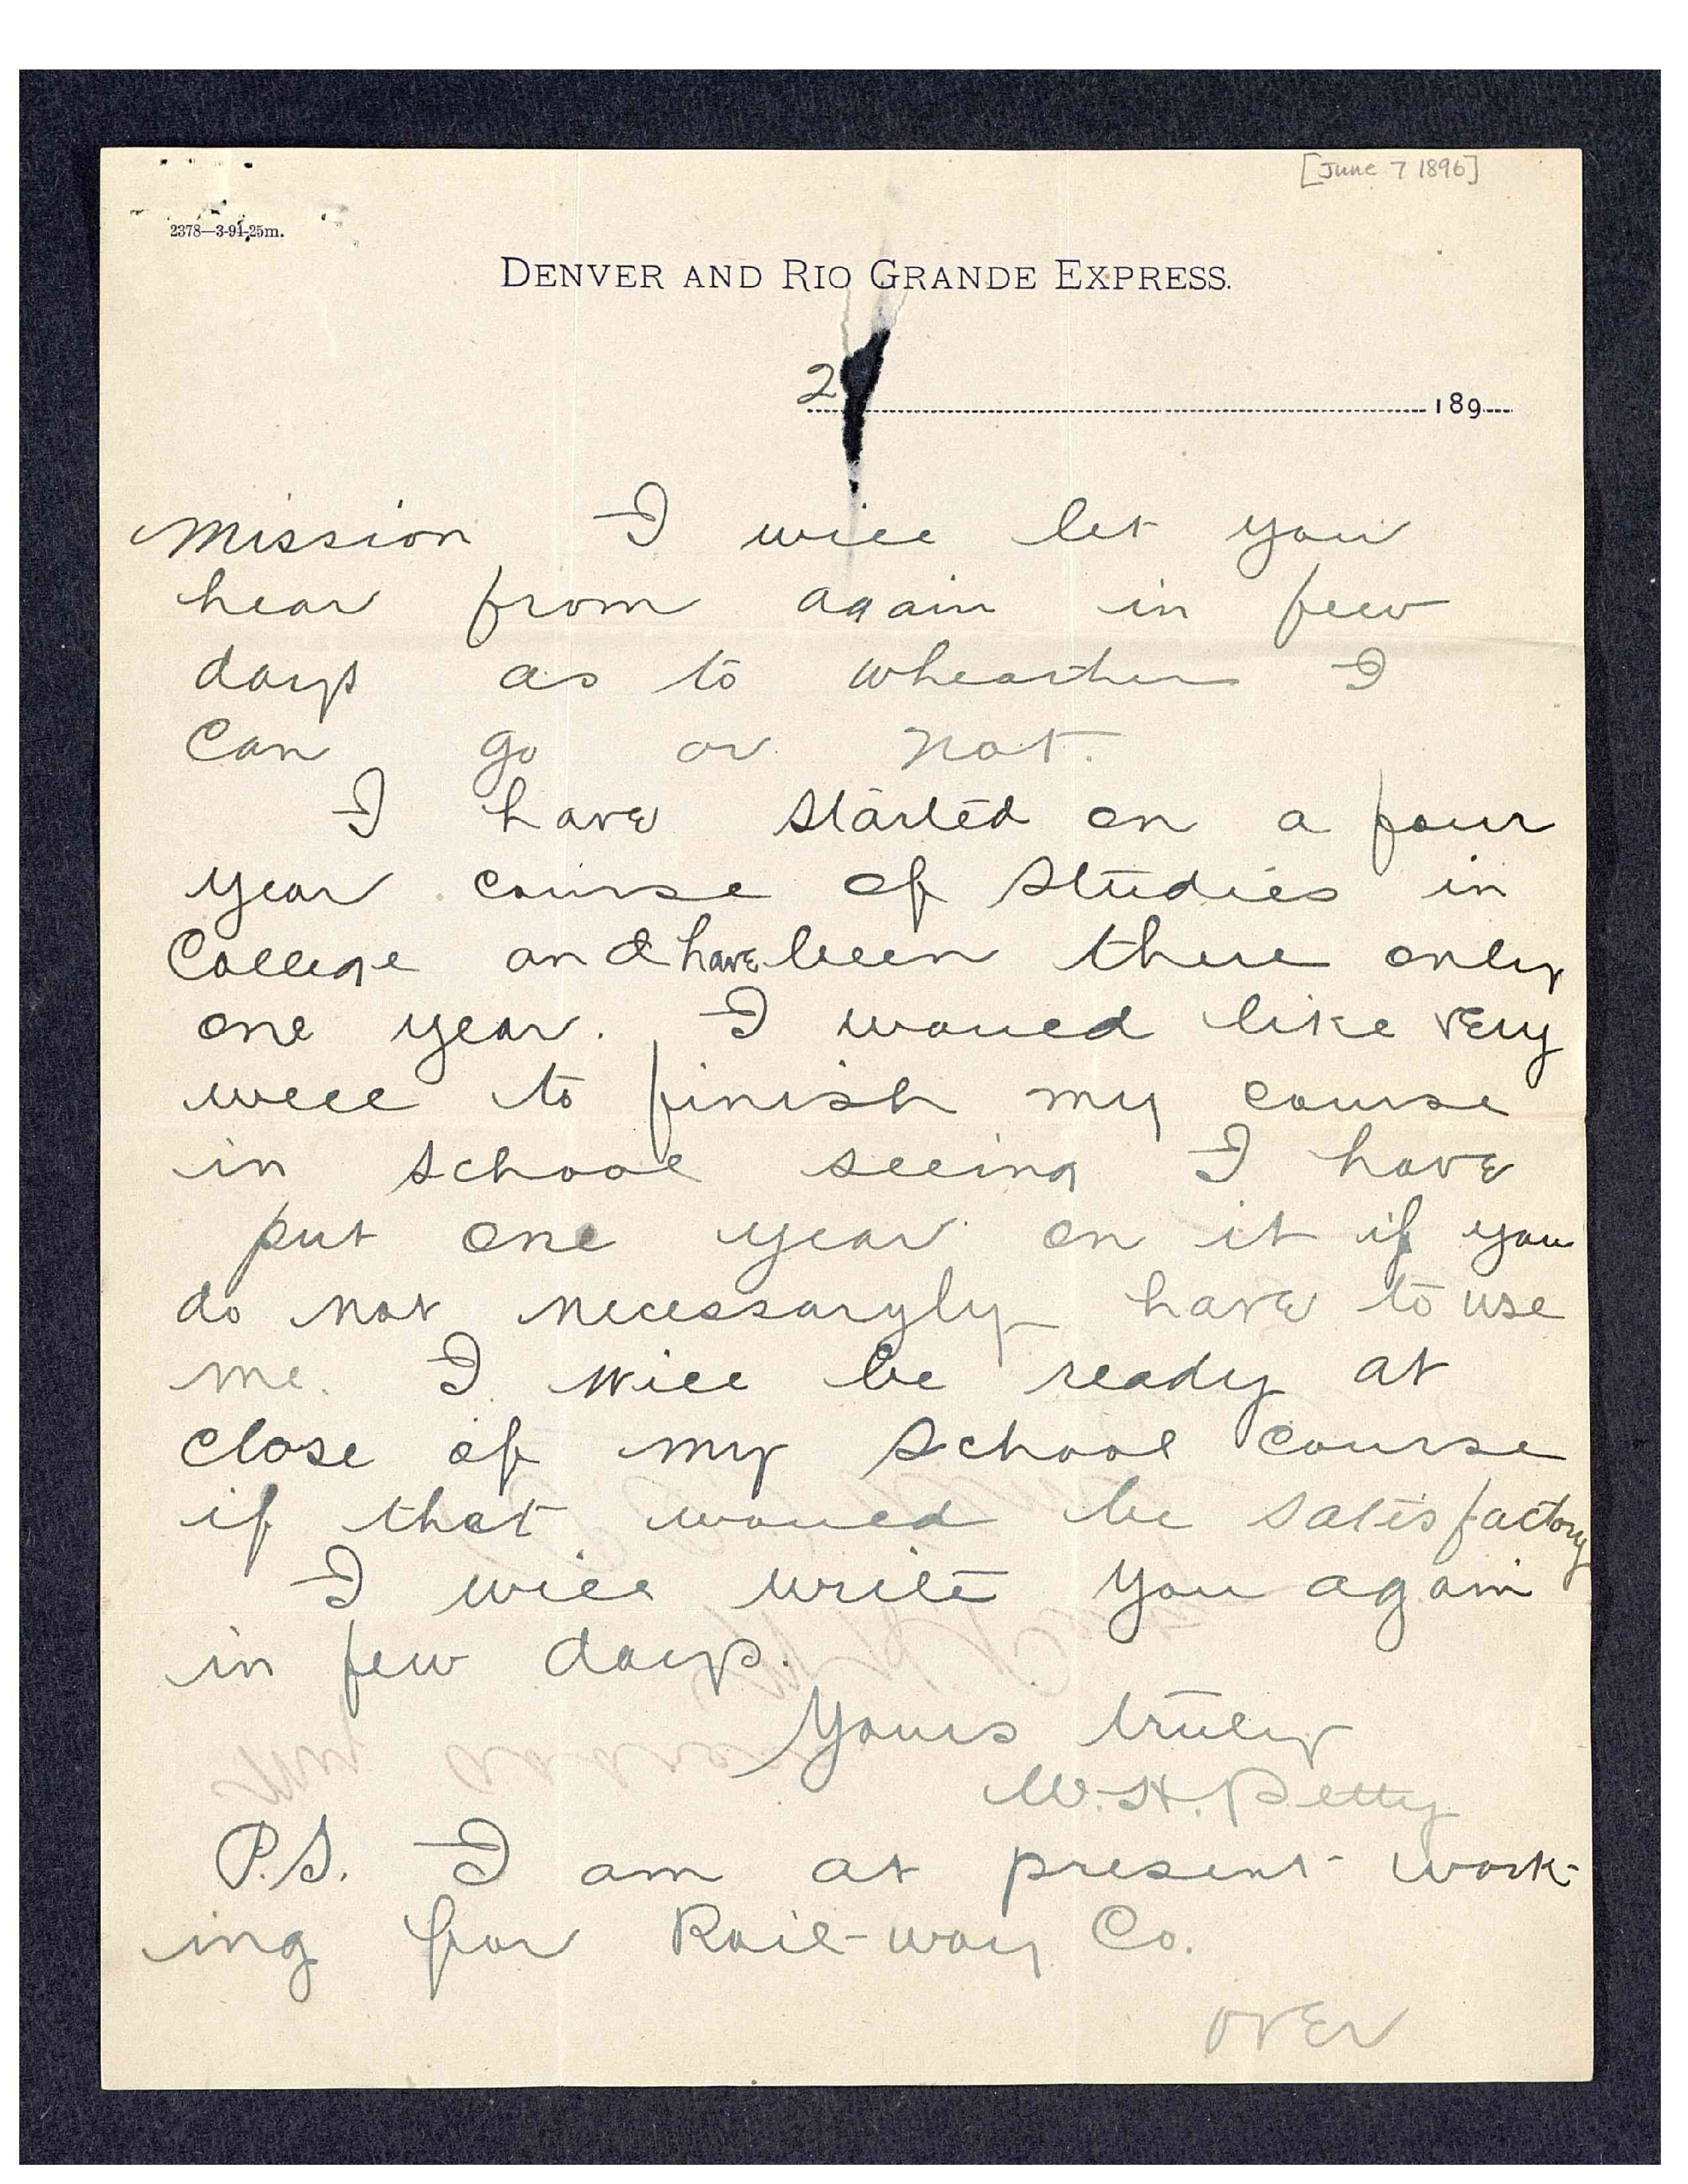 [June 7 1896]
2378—3-94-25m.
DENVER AND RIO GRANDE EXPRESS.
2 189
mission I will let you
hear from again in few
days as to whearther I
can go or not.
I have started on a four
year course of studies in
College and have been there only
one year. I would like very
well to finish my course
in school seeing I have
put one year on it if you
do not necessaryly have to use
me. I will be ready at
close of my school course
if that would be satisfactory
I will write you again
in few days.
Yours truly
W. H. Petty
P.S. I am at present work-
ing for Rail-way Co.
OVER